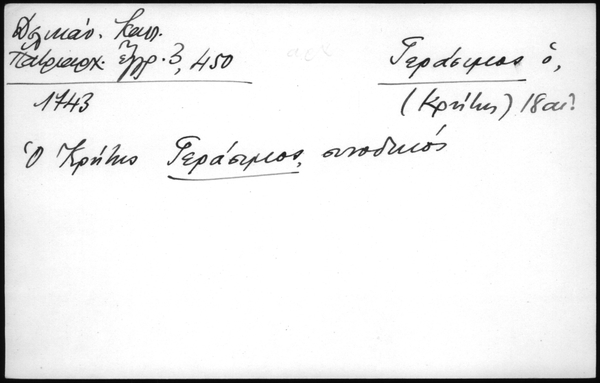 Δελικάν. Καλλ.
Πατριαρχ. Ἔγγρ. 3, 450
1743
Γεράσιμος ὁ,
(Κρήτης) 18 αι?
Ὁ Κρήτης Γεράσιμος, συνοδικός